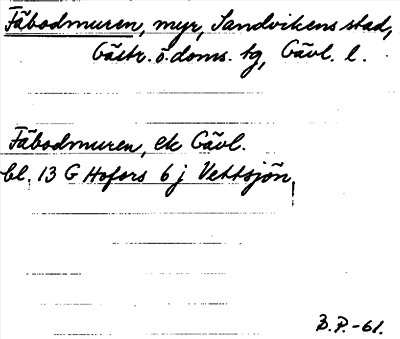 Fäbodmuren, myr, Sandvikens stad,
Gästr. ö. doms. tg, Gävl. l.
Fäbodmuren, ek Gävl.
bl. 13 G Hofors 6 j Vettsjön,
B.P.-61.